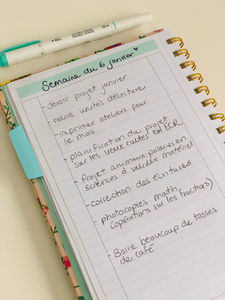 Semaine du 6 janvier ♥
- devoir projet janvier
- relire unités d'écriture
- imprimer ateliers pour
le mois
- planification du projet
sur les vieux cultes en ECR
- Projet animaux polaires en
sciences à valider matériel
- correction des écritures
- photocopies math
(opérations sur les fractions)
- Boire beaucoup de tasses
de café